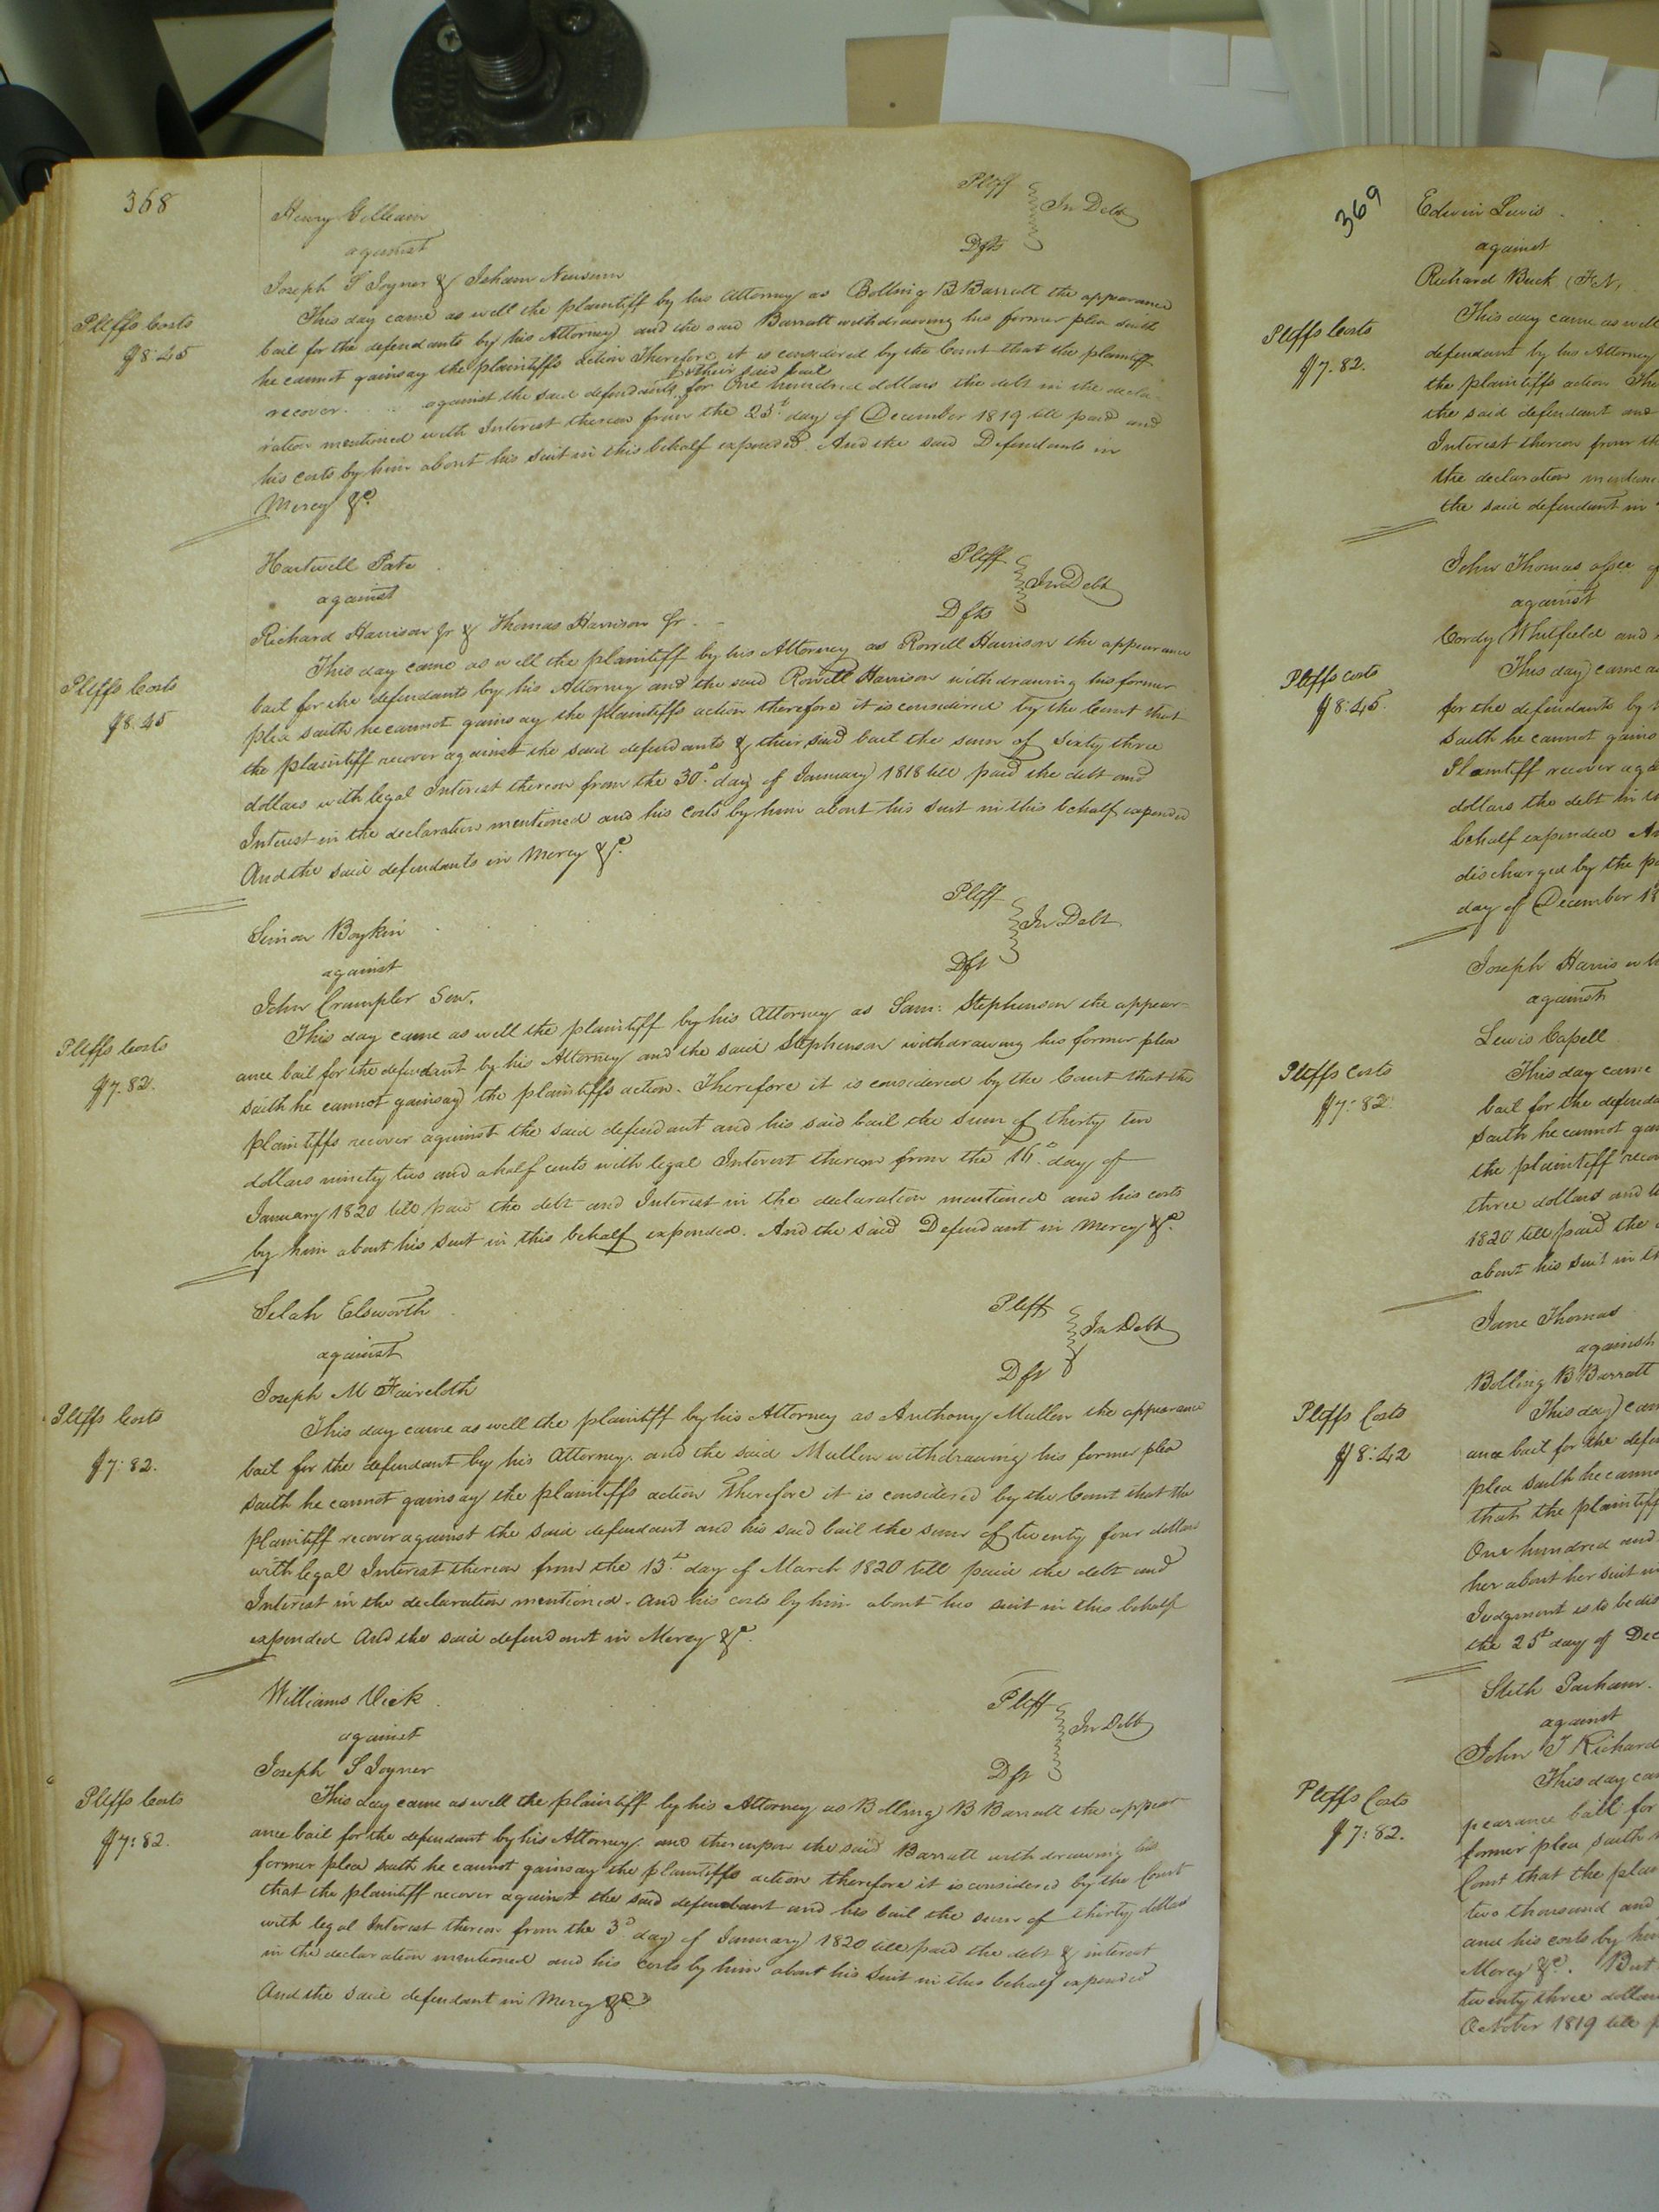 368
Henry Gilliam Pltff
against In Debt
Joseph S Joyner & Isham Newsum Dfts
This day came as well the plaintiff by his Attorney as Bolling B Barratt the appearance
Pltffs Costs
$8:45
bail for the defendants by his Attorney and the said Barratt withdrawing his former plea saith
he cannot gainsay the plaintiffs action Therefore it is considered by the Court that the plaintiff
& their said bail
recover against the said defendants for One hundred dollars the debt in the decla-
ration mentioned with Interest thereon from the 25th day of December 1819 till paid and
his costs by him about his suit in this behalf expended. And the said Defendants in
Mercy &c.
Hartwell Pate Pltff
against In Debt
Richard Harrison Jr & Thomas Harrison Jr. Dfts
This day came as well the plaintiff by his Attorney as Rowell Harrison the appearance
Pltffs Costs
$8.45
bail for the defendants by his Attorney and the said Rowell Harrison withdrawing his former
plea saith he cannot gainsay the plaintiffs action therefore it is considered by the Court that
the plaintiff recover against the said defendants & their said bail the sum of Sixty three
dollars with legal Interest thereon from the 30th day of January 1818 till paid the debt and
Interest in the declaration mentioned and his Costs by him about his suit in this behalf expended
And the said defendants in Mercy &c.
Simon Boykin Pltff
against In Debt
John Crumpler Senr. Dft
This day came as well the plaintiff by his Attorney as Saml: Stephenson the appear-
Pltffs Costs
$7.82.
ance bail for the defendant by his Attorney and the said Stephenson withdrawing his former plea
saith he cannot gainsay the plaintiffs action. Therefore it is considered by the Court that the
plaintiffs recover against the said defendant and his said bail the sum of thirty two
dollars ninety two and a half cents with legal Interest thereon from the 16th day of
January 1820 till paid the debt and Interest in the declaration mentioned and his costs
by him about his suit in this behalf expended. And the said Defendant in Mercy &c.
Selah Elsworth Pltff
against In Debt
Joseph M Faircloth Dft
This day came as well the plaintiff by his Attorney as Anthony Mullen the appearance
Pltffs Costs
$7:82.
bail for the defendant by his Attorney. and the said Mullen withdrawing his former plea
saith he cannot gainsay the plaintiffs action Therefore it is considered by the Court that the
plaintiff recover against the said defendant and his said bail the sum of twenty four dollars
with legal Interest thereon from the 13th day of March 1820 till paid the debt and
Interest in the declaration mentioned. And his costs by him about his suit in this behalf
expended And the said defendant in Mercy &c.
Williams Vick Pltff
against In Debt
Joseph S Joyner Dft
This day came as well the plaintiff by his Attorney as Bolling B Barratt the appear
Pltffs Costs
$7:82.
ance bail for the defendant by his Attorney. and thereupon the said Barratt withdrawing his
former plea saith he cannot gainsay the plaintiffs action therefore it is considered by the Court
that the plaintiff recover against the said defendant and his bail the sum of thirty dollars
with legal Interest thereon from the 3d day of January 1820 till paid the debt & interest
in the declaration mentioned and his costs by him about his Suit in this behalf expended
And the said defendant in Mercy &c
369
Edwin Lewis
against
Richard Buck
This day came as well
Pltffs Costs
$7.82.
defendant by his Attorney
the plaintiffs action
the said defendant and
Interest thereon from
the declaration
the said defendant in
John Thomas assee
against
Cordy Whitfield and
This day came
Pltffs costs
$8:45
for the defendants by
saith he cannot
Plaintiff recover
dollars the debt in
behalf expended
discharged by the
day of December
Joseph Harris
against
Lewis Capell
This day came
Pltffs Costs
$7:82
bail for the
saith he cannot
the plaintiff
three dollars and
1820 till paid the
about his suit in
Jane Thomas
against
Bolling B Barratt
This day
Pltffs Costs
$8:42
ance bail for the
plea saith he
that the plaintiff
One hundred and
her about her suit
Judgment is to be
the 25th day of
Stith Parham.
against
John T
This day
Pltffs Costs
$7:82.
pearance bail for
former plea saith
Court that the
two thousand and
and his costs by
Mercy &c. But
twenty three
October 1819 till